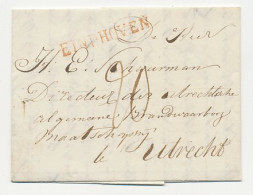 EINDHOVEN
De Heer
H. E.
Directeur der Utrechtsche
algemeene Brandwaarborg
maatschappij
te Utrecht